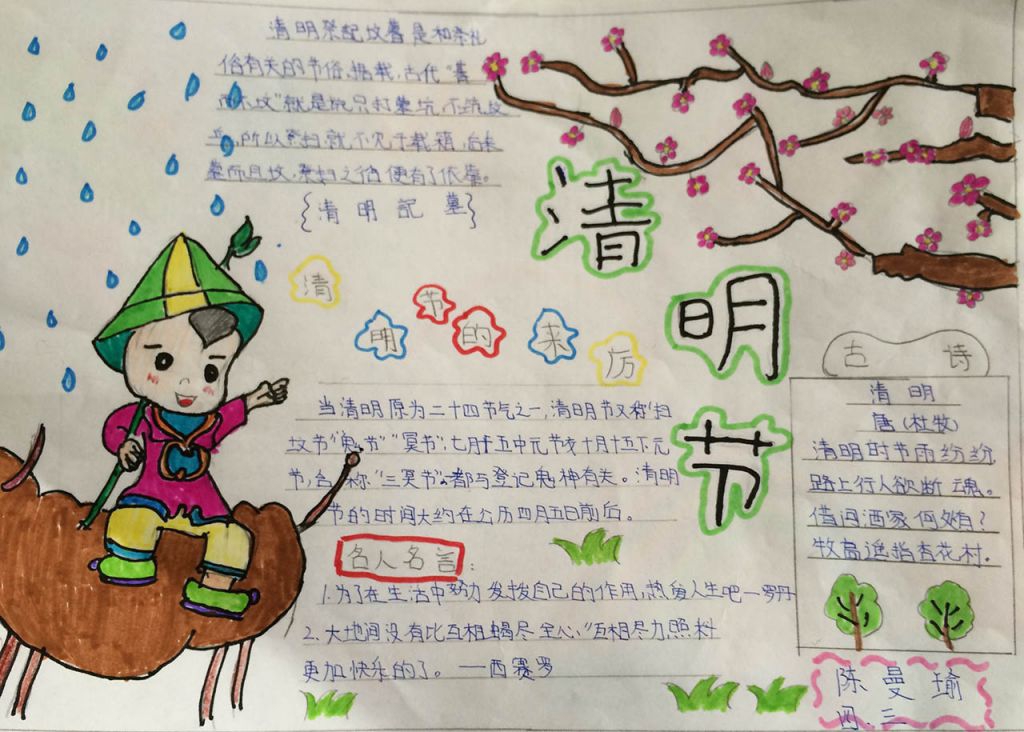 清明祭祀坟墓是和丧礼
俗有关的节俗。据载,古代“墓
而不坟”就是说只打墓坑,不筑坟
丘,所以祭扫就不见于载籍,后来
墓而且坟,祭扫之俗便有了依靠。
{清明记墓}
清明节
清明节的来历
当清明原为二十四节气之一,清明节又称“扫
坟节”“鬼节”“冥节”,七月十五中元节及十月十五下元
节,合称“三冥节”,都与登记鬼神有关。清明
节的时间大约在公历四月五日前后。
名人名言:
1.为了在生活中努力发拨自己的作用,热爱人生吧—罗丹
2.大地间没有比互相蝎尽全心,“互相尽力照料
更加快乐的了。——西赛罗
古诗
清明
唐(杜牧)
清明时节雨纷纷,
路上行人欲断魂。
借问酒家何处有?
牧高遥指杏花村.
陈曼瑜
四.三